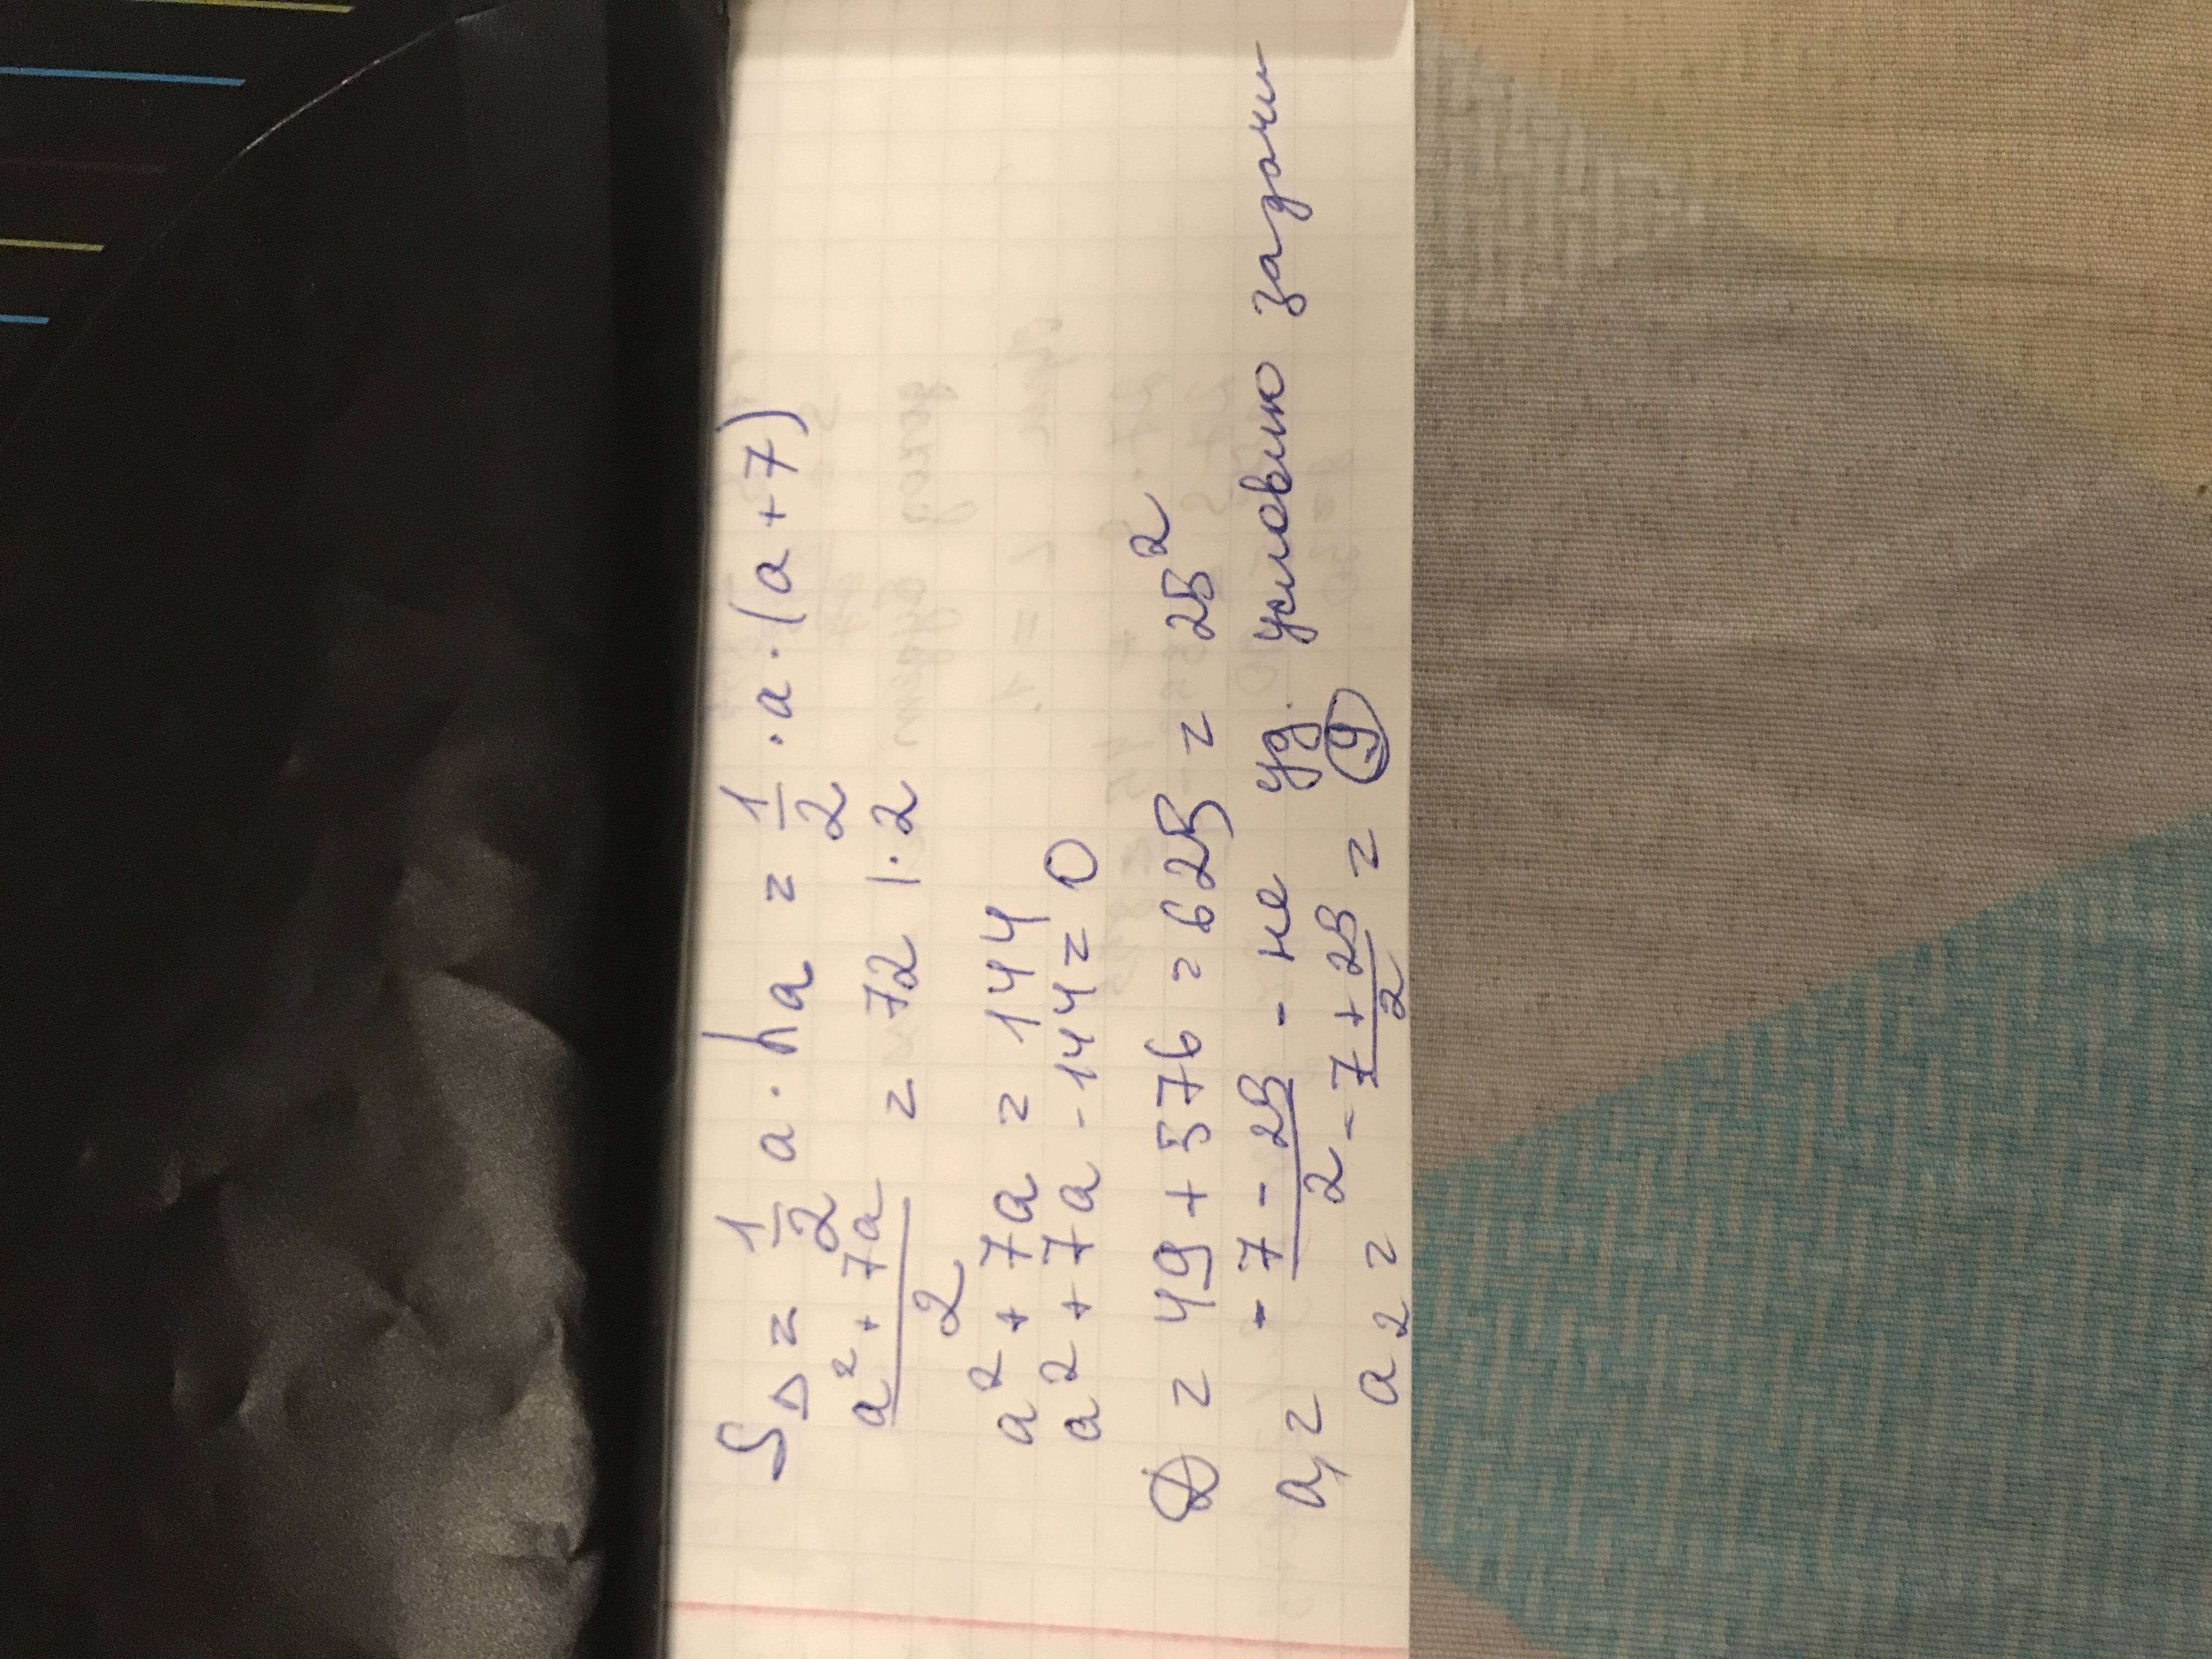 S△ = 1/2 a · ha = 1/2 · a · (a + 7)
(a² + 7a)/2 = 72 | · 2
a² + 7a = 144
a² + 7a - 144 = 0
D = 49 + 576 = 625 = 25²
a₁ = (-7 - 25)/2 - не уд. условию задачи
a₂ = (-7 + 25)/2 = 9